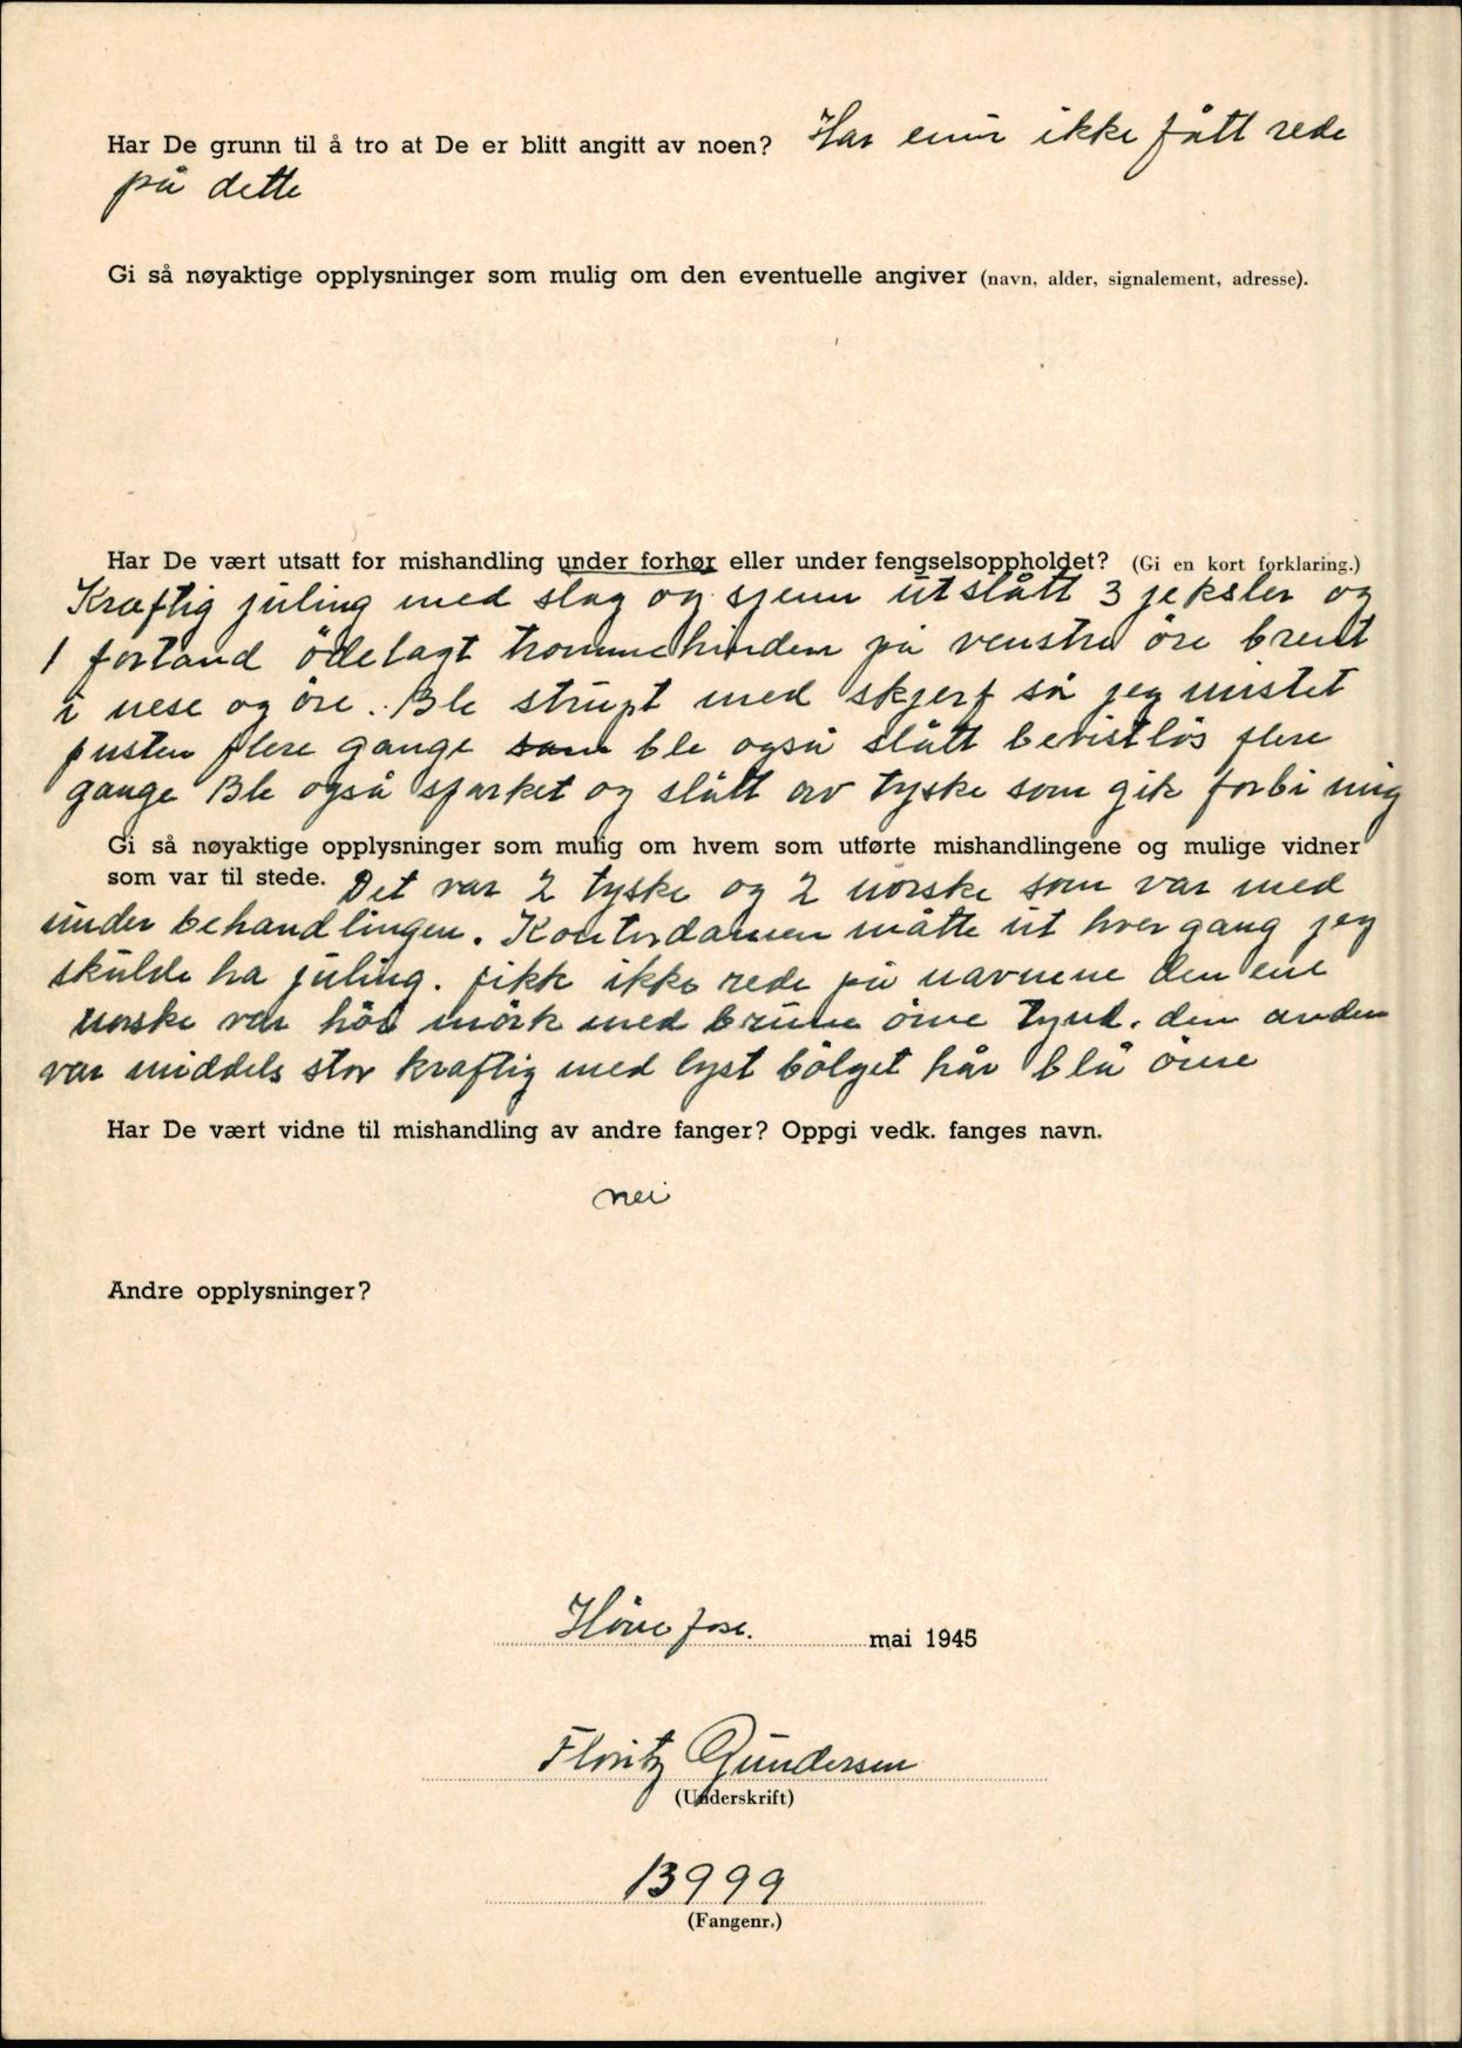 Har De grunn til å tro at De er blitt angitt av noen? Har enn ikke fått rede
på dette
Gi så nøyaktige opplysninger som mulig om den eventuelle angiver (navn, alder, signalement, adresse).
Har De vært utsatt for mishandling under forhør eller under fengselsoppholdet? (Gi en kort forklaring.)
Kraftig juling med slag og utslått 3 jeksler og
1 fortand ödelagt trommehinden på venstre öre brent
i nese og öre. Ble strupt med skjerf så jeg mistet
pusten flere gange som ble også slått bevistlös flere
gange Ble også sparket og slått av tyske som gik forbi mig
Gi så nøyaktige opplysninger som mulig om hvem som utførte mishandlingene og mulige vidner
som var til stede. Det var 2 tyske og 2 norske som var med
under behandlingen. Kontordamen måtte ut hver gang jeg
skulde ha juling. fikk ikke rede på navnene den ene
norske var höi mörk med brune öine tynd. den anden
var middels stor kraftig med lyst bölget hår blå öine
Har De vært vidne til mishandling av andre fanger? Oppgi vedk. fanges navn.
nei
Andre opplysninger?
Hönefoss. mai 1945
Floritz Gundersen
(Underskrift)
13999
(Fangenr.)